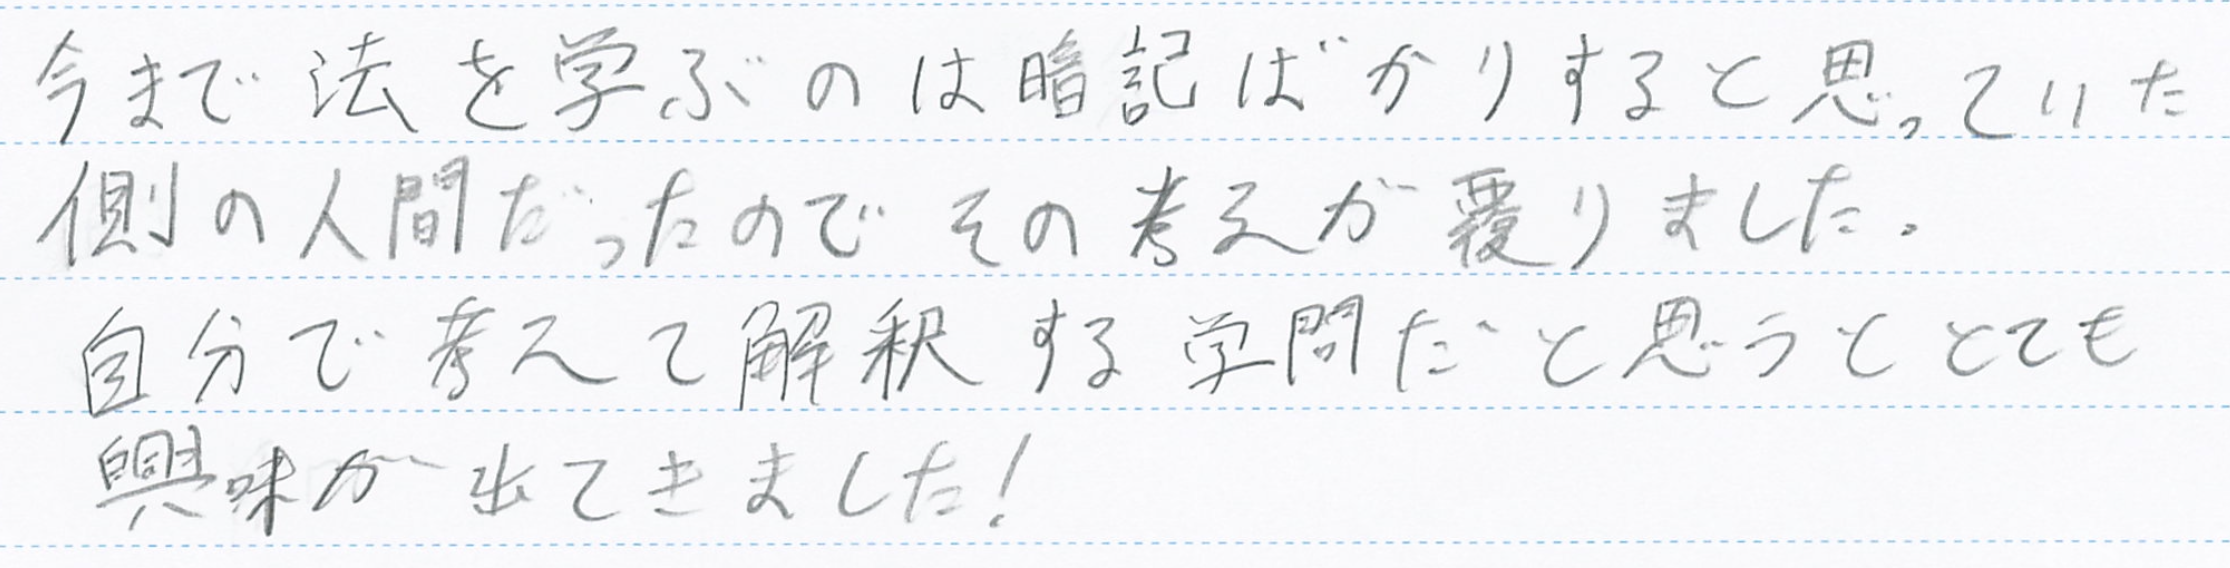 今まで法を学ぶのは暗記ばかりすると思っていた
側の人間だったのでその考えが覆りました。
自分で考えて解釈する学問だと思うととても
興味が出てきました!